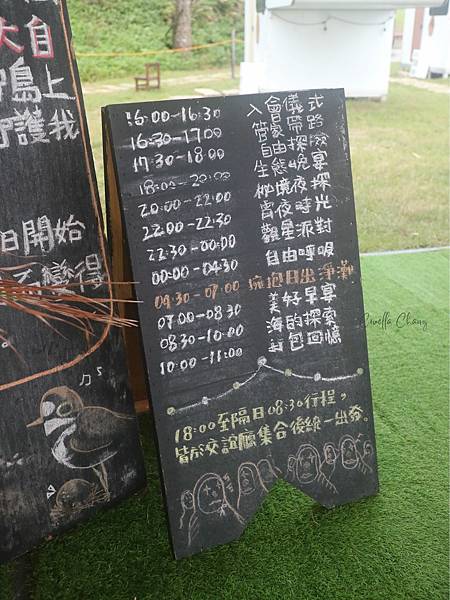 大自
島上
護我
日開始
變得
16:00-16:30 入會儀式
16:30-17:00 管家帶路
17:30-18:00 自由探險
18:00-20:00 生態晚宴
20:00-22:00 秘境夜探
22:00-22:30 宵夜時光
22:30-00:00 觀星派對
00:00-04:30 自由呼吸
04:30-07:00 擁抱日出淨灘
07:00-08:30 美好早宴
08:30-10:00 海的探索
10:00-11:00 封包回憶
18:00至隔日08:30行程，
皆於交誼廳集合後統一出發。